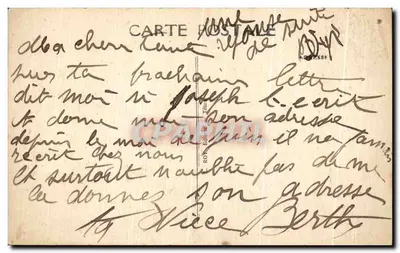 CARTE POSTALE
une
réponse
de suite
Ma chere tante
sur ta prochaine lettre
dit moi si Joseph t'ecrit
et donne moi son adresse
depuis le moi de juin il ne jamais
recrit chez nous
Et surtout n'oublie pas de me
la donner son adresse
ta Niece Berthe